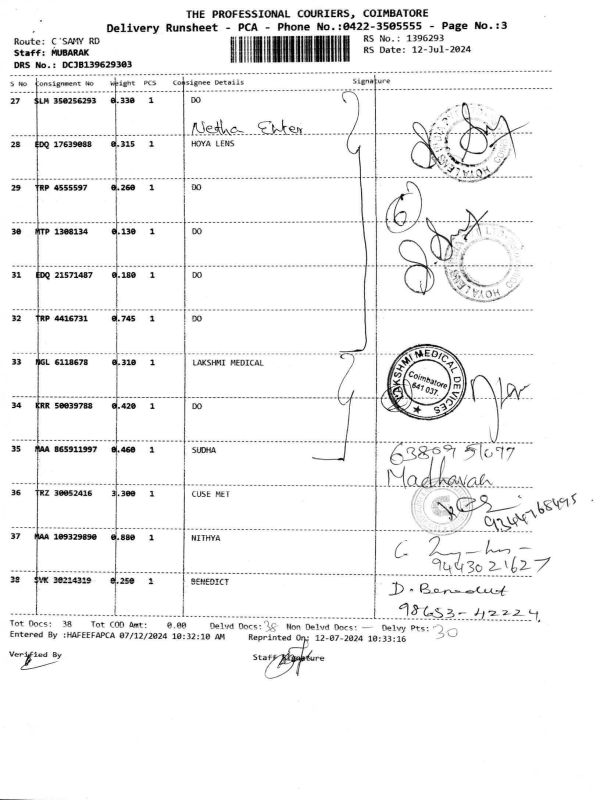 THE PROFESSIONAL COURIERS, COIMBATORE
Delivery Runsheet - PCA - Phone No.:0422-3505555 - Page No.:3
Route: C`SAMY RD RS No.: 1396293
Staff: MUBARAK RS Date: 12-Jul-2024
DRS No.: DCJB139629303
S No Consignment No Weight PCS Consignee Details Signature
27 SLM 350256293 0.330 1 DO
Netha Enter
28 EDQ 17639088 0.315 1 HOYA LENS
29 TRP 4555597 0.260 1 DO
6
30 MTP 1308134 0.130 1 DO
HOYA LENS
31 EDQ 21571487 0.180 1 DO
32 TRP 4416731 0.745 1 DO
33 NGL 6118678 0.310 1 LAKSHMI MEDICAL
LAKSHMI MEDICAL DEVICES
Coimbatore
641 037.
34 KRR 50039788 0.420 1 DO
35 MAA 865911997 0.460 1 SUDHA
Madhavan
36 TRZ 30052416 3.300 1 CUSE MET
37 MAA 109329890 0.880 1 NITHYA
9443021627
38 SVK 30214319 0.250 1 BENEDICT D. Benedict
98653-42224
Tot Docs: 38 Tot COD Amt: 0.00 Delvd Docs: 38 Non Delvd Docs: — Delvy Pts: 30
Entered By :HAFEEFAPCA 07/12/2024 10:32:10 AM Reprinted On: 12-07-2024 10:33:16
Verified By Staff Signature